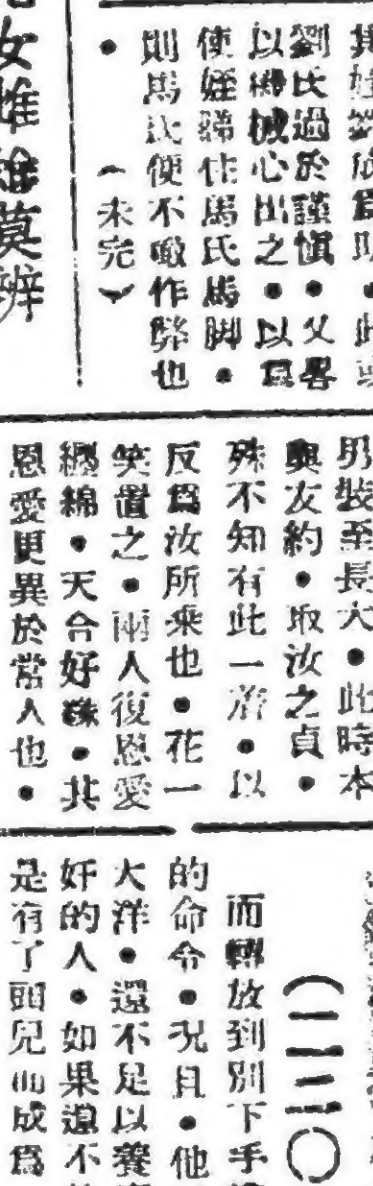 劉氏過於謹愼●父畧
以機械心出之●以爲
使姪歸住馬氏馬脚●
則馬氏便不敢作弊也
●（未完）
女雄雌莫辨
男裝至長大●此時本
與友約●取汝之貞●
殊不知有此一着●以
反爲汝所乘也●花一
笑置之●兩人復恩愛
纏綿●天合好緣●其
恩愛更異於常人也●
（二二〇
而轉放到別下手
的命令●况且●他
大洋●還不足以養
奸的人●如果還不
是有了頭兒而成爲